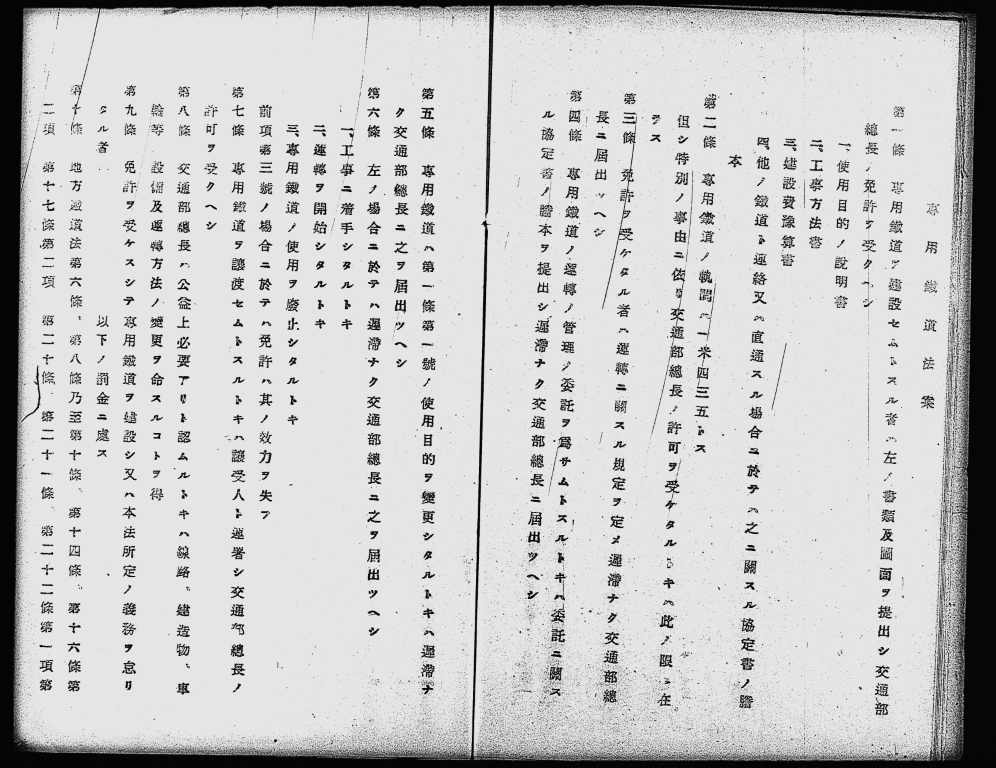 專用鐵道法案
第一條　專用鐵道ヲ建設セムトスル者ハ左ノ書類及圖面ヲ提出シ交通部
總長ノ免許ヲ受クヘシ
一、使用目的ノ說明書
二、工事方法書
三、建設費豫算書
四、他ノ鐵道ト連絡又ハ直通スル場合ニ於テハ之ニ關スル協定書ノ謄
本
第二條　專用鐵道ノ軌間ハ一米四三五トス
但シ特別ノ事由ニ依リ交通部總長ノ許可ヲ受ケタルトキハ此ノ限ニ在
ラス
第三條　免許ヲ受ケタル者ハ運轉ニ關スル規定ヲ定メ遲滯ナク交通部總
長ニ屆出ツヘシ
第四條　專用鐵道ノ運轉ノ管理ノ委託ヲ爲サムトスルトキハ委託ニ關ス
ル協定書ノ謄本ヲ提出シ遲滯ナク交通部總長ニ屆出ツヘシ
第五條　專用鐵道ハ第一條第一號ノ使用目的ヲ變更シタルトキハ遲滯ナ
ク交通部總長ニ之ヲ屆出ツヘシ
第六條　左ノ場合ニ於テハ遲滯ナク交通部總長ニ之ヲ屆出ツヘシ
一、工事ニ着手シタルトキ
二、運轉ヲ開始シタルトキ
三、專用鐵道ノ使用ヲ廢止シタルトキ
前項第三號ノ場合ニ於テハ免許ハ其ノ效力ヲ失フ
第七條　專用鐵道ヲ讓渡セムトスルトキハ讓受人ト連署シ交通部總長ノ
許可ヲ受クヘシ
第八條　交通部總長ハ公益上必要アリト認ムルトキハ線路、建造物、車
輛等　設備及運轉ノ方法ノ變更ヲ命スルコトヲ得
第九條　免許ヲ受ケスシテ專用鐵道ヲ建設シ又ハ本法所定ノ義務ヲ怠リ
タル者　以下ノ罰金ニ處ス
第十條　地方鐵道法第六條、第八條乃至第十條、第十四條、第十六條第
二項　第十七條第二項　第二十條、第二十一條　第二十二條第一項第